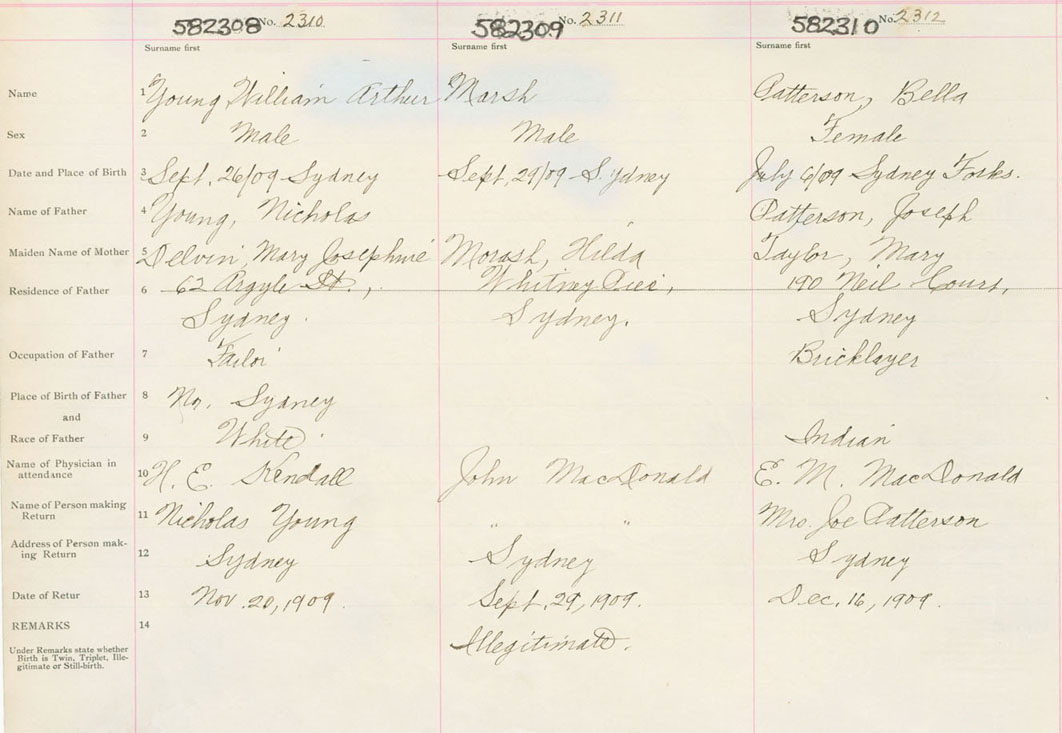 582308 No. 2310 582309 No. 2311 582310 No. 2312
Surname first Surname first Surname first
Name 1 Young, William Arthur Marsh Patterson, Bella
Sex 2 Male Male Female
Date and Place of Birth 3 Sept. 26/09 Sydney Sept. 29/09 Sydney July 6/09 Sydney Forks.
Name of Father 4 Young, Nicholas Patterson, Joseph
Maiden Name of Mother 5 Delvin, Mary Josephine Morash, Hilda Taylor, Mary
Residence of Father 6 62 Argyle St., Whitney Pier, 190 Neil Court,
Sydney. Sydney. Sydney
Occupation of Father 7 Tailor Bricklayer
Place of Birth of Father 8 No. Sydney
and
Race of Father 9 White Indian
Name of Physician in
attendance 10 H. E. Kendall John MacDonald E. M. MacDonald
Name of Person making
Return 11 Nicholas Young " " Mrs. Joe Patterson
Address of Person mak-
ing Return 12 Sydney Sydney Sydney
Date of Retur 13 Nov. 20, 1909. Sept. 29, 1909. Dec. 16, 1909.
REMARKS 14
Under Remarks state whether Illegitimate.
Birth is Twin, Triplet, Ille-
gitimate or Still-birth.